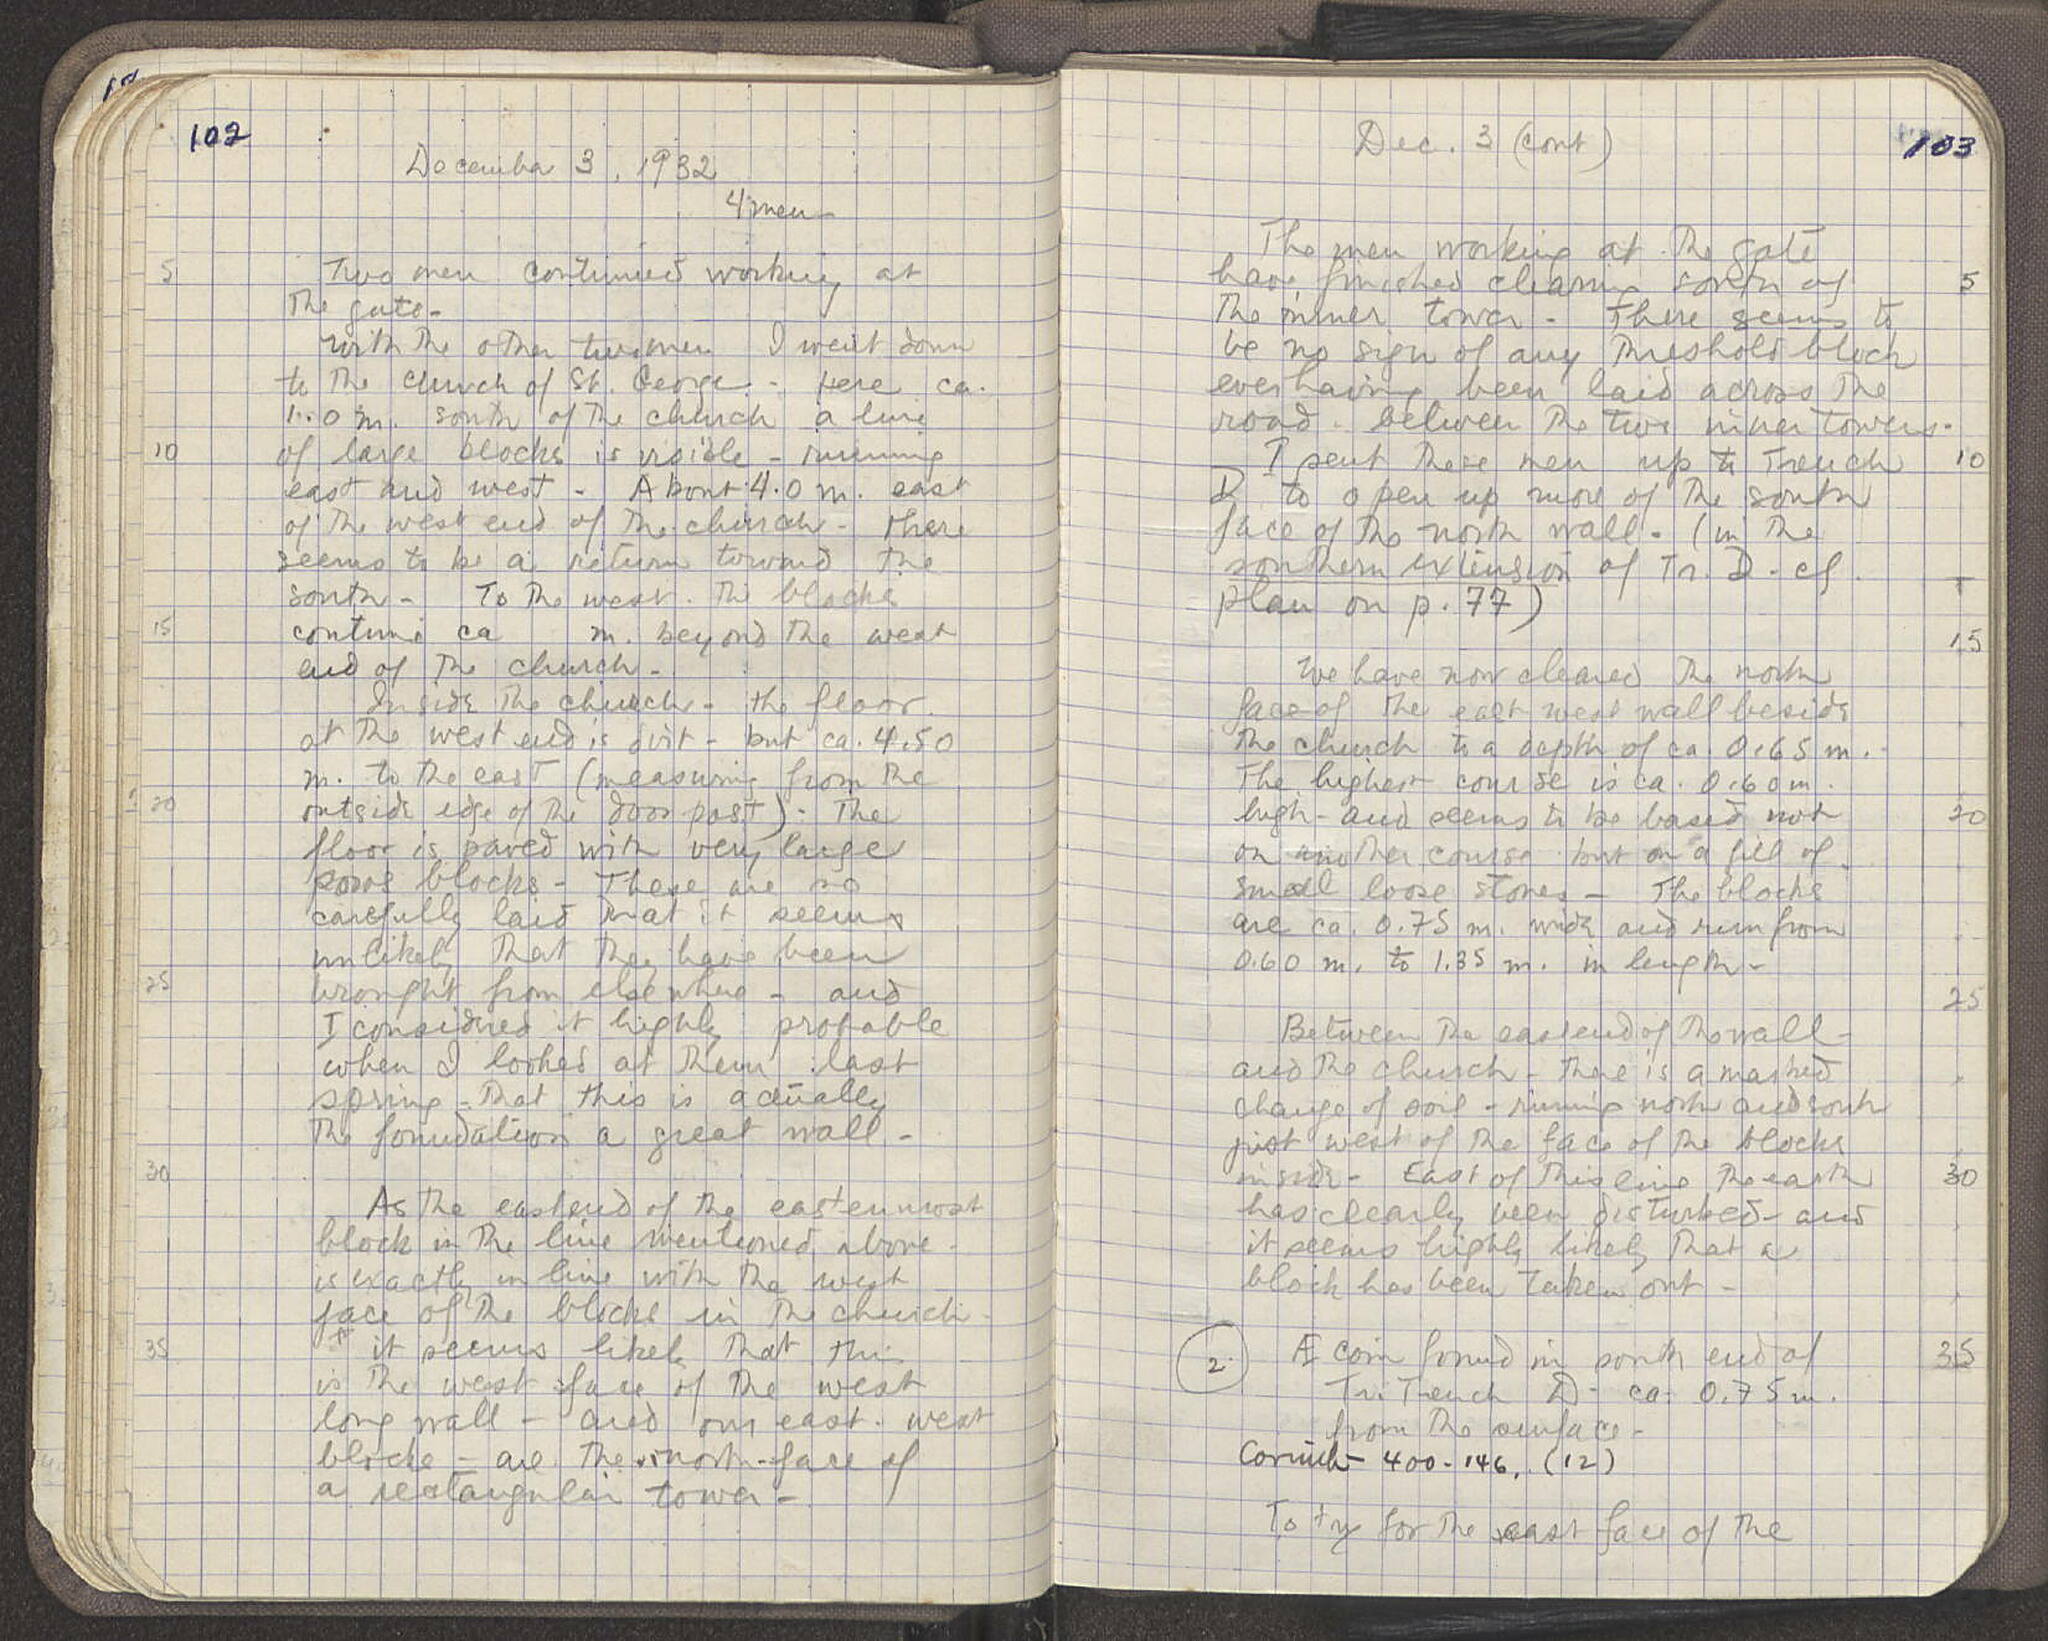 102
December 3, 1932
4 men -
5
Two men continued working at
the gate -
with the other two men I went down
to the church of St. George - Here ca.
1.0 m. south of the church a line
10
of large blocks is visible - running
east and west - About 4.0 m. east
of the west end of the church - there
seems to be a return toward the
south - To the west. the blocks
15
continue ca m. beyond the west
end of the church -
Inside the church - the floor
at the west end is dirt - but ca. 4.50
m. to the east (measuring from the
20
outside edge of the door post) - the
floor is paved with very large
poros blocks - These are so
carefully laid that it seems
unlikely that they have been
25
brought from elsewhere - and
I considered it highly probable
when I looked at them last
spring - that this is actually
the foundation a great wall -
30
As the east end of the easternmost
block in the line mentioned above -
is exactly in line with the west
face of the blocks in the church -
35
it seems likely that this
is the west face of the west
long wall - and our east-west
blocks - are the north-face of
a rectangular tower -
Dec. 3 (cont)
103
The men working at the gate
have finished clearing south of
5
the inner tower - There seems to
be no sign of any threshold block
ever having been laid across the
road - between the two inner towers -
I sent these men up to Trench
10
D to open up more of the south
face of the north wall - (in the
southern extension of Tr. D - cf.
plan on p. 77)
15
We have now cleared the north
face of the east west wall beside
the church to a depth of ca. 0.65 m. -
The highest course is ca. 0.60 m.
high - and seems to be based not
20
on another course but on a fill of
small loose stones - The blocks
are ca. 0.75 m. wide and run from
0.60 m. to 1.35 m. in length -
25
Between the east end of the wall -
and the church - there is a marked
change of soil - running north and south
just west of the face of the blocks
inside - East of this line the earth
30
has clearly been disturbed - and
it seems highly likely that a
block has been taken out -
2.
Æ coin found in south end of
35
Tr. Trench D - ca. 0.75 m.
from the surface -
Corinth - 400-146. (12)
To try for the east face of the